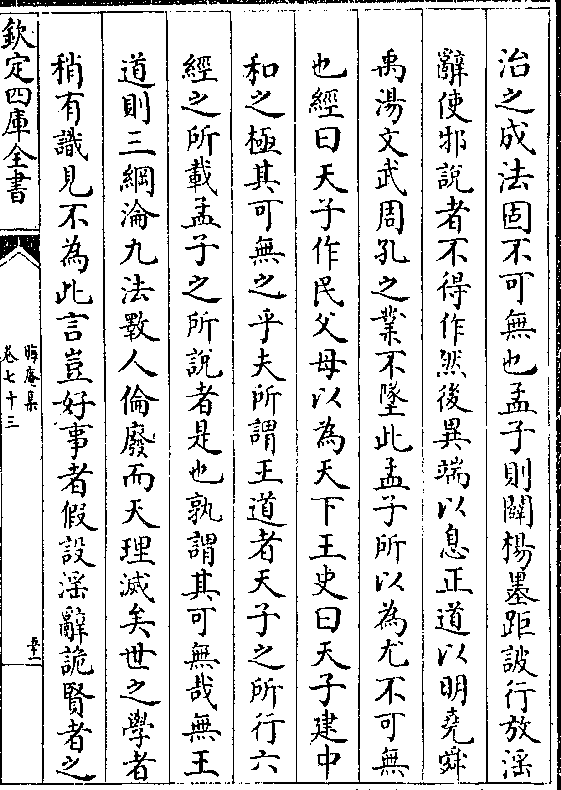 治之成法固不可無也孟子則闢楊墨距詖行放淫
辭使邪說者不得作然後異端以息正道以明堯舜
禹湯文武周孔之業不墜此孟子所以為尤不可無
也經曰天子作民父母以為天下王史曰天子建中
和之極其可無之乎夫所謂王道者天子之所行六
經之所載孟子之所說者是也孰謂其可無哉無王
道則三綱淪九法斁人倫廢而天理滅矣世之學者
稍有識見不為此言豈好事者假設淫辭詭賢者之
欽定四庫全書
晦庵集
卷七十三